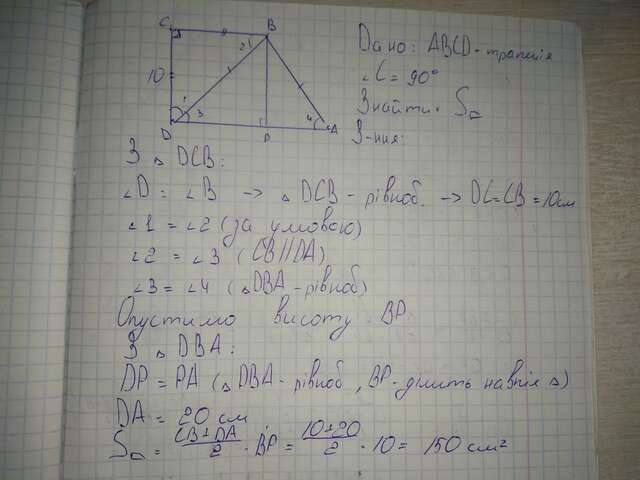 C B
2
10
1 3
4
D P A
Дано: ABCD - трапеція
∠C = 90°
Знайти: S
З-ння:
З △ DCB:
∠D = ∠B → △ DCB - рівноб. → DC = CB = 10 см
∠1 = ∠2 (за умовою)
∠2 = ∠3 (CB || DA)
∠3 = ∠4 (△ DBA - рівноб)
Опустимо висоту BP
З △ DBA:
DP = PA (△ DBA - рівноб, BP - ділить навпіл △)
DA = 20 см
S = (CB + DA)/2 · BP = (10+20)/2 · 10 = 150 см²